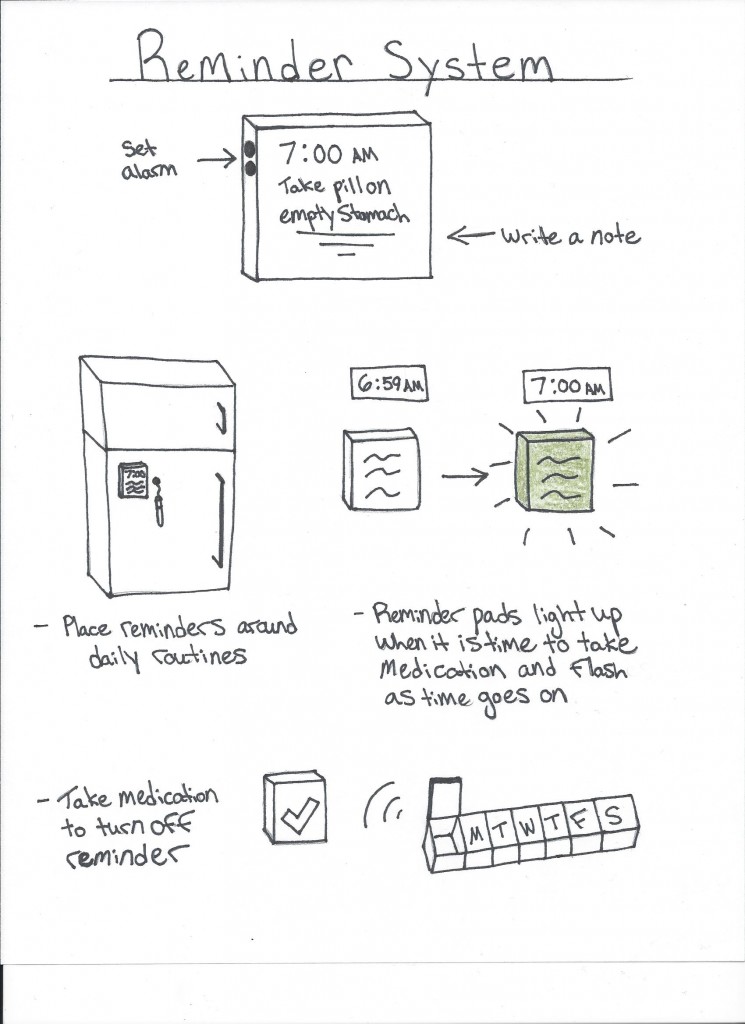 Reminder System
Set
alarm
7:00 AM
Take pill on
empty Stomach
Write a note
6:59 AM
7:00 AM
7:00
- Place reminders around
daily routines
- Reminder pads light up
when it is time to take
Medication and flash
as time goes on
- Take medication
to turn off
reminder
M T W T F S